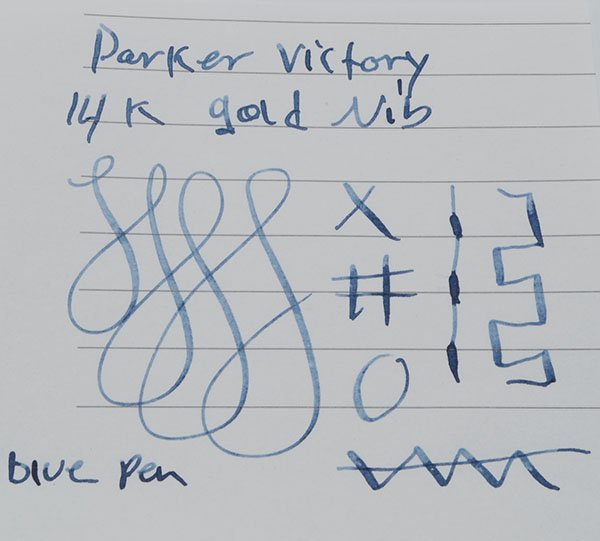 Parker Victory
14 K gold Nib
X
#
O
blue pen